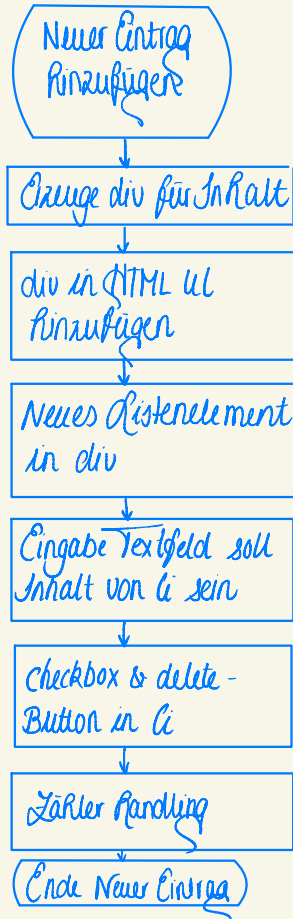 Neuer Eintrag
hinzufügen
Erzeuge div für Inhalt
div in HTML ul
hinzufügen
Neues Listenelement
in div
Eingabe Textfeld soll
Inhalt von li sein
checkbox & delete-
Button in li
Zähler Handling
Ende Neuer Eintrag